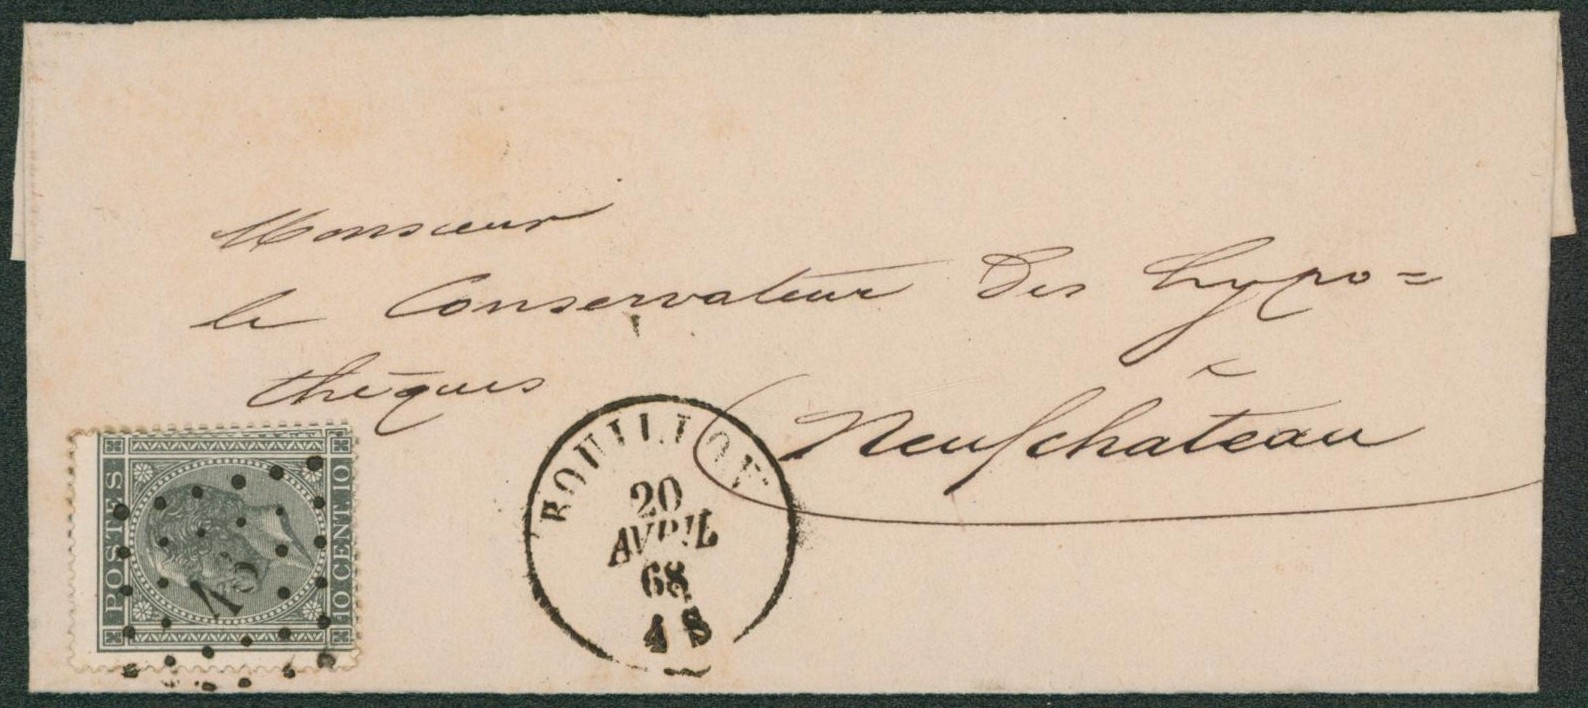 Monsieur
le Conservateur des hypo=
thèques
à
Neufchateau
BOUILLON
20
AVRIL
68
4 S
POSTES
10 CENT. 10